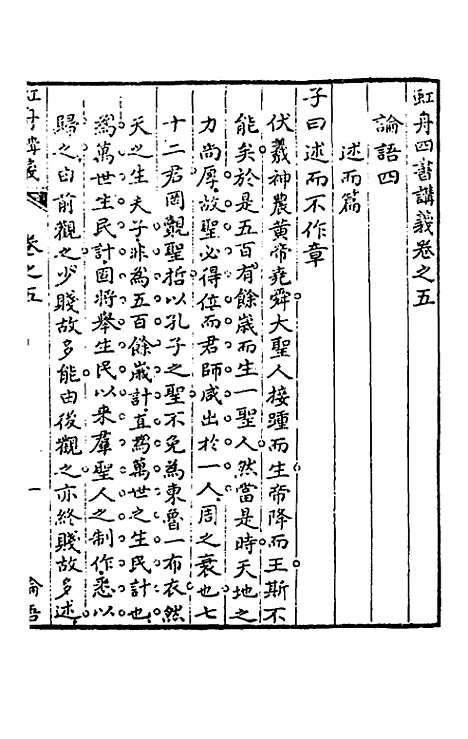 虹舟四書講義卷之五
論語四
述而篇
子曰述而不作章
伏羲神農黃帝堯舜大聖人接踵而生帝降而王斯不
能矣於是五百有餘歲而生一聖人然當是時天地之
力尚厚故聖必得位而君師咸出於一人周之衰也七
十二君罔觀聖哲以孔子之聖不免為東魯一布衣然
天之生夫子非為五百餘歲計直為萬世之生民計也
為萬世生民計固將舉生民以來羣聖人之制作悉以
歸之由前觀之少賤故多能由後觀之亦終賤故多述
虹舟講義
卷之五
一
論語